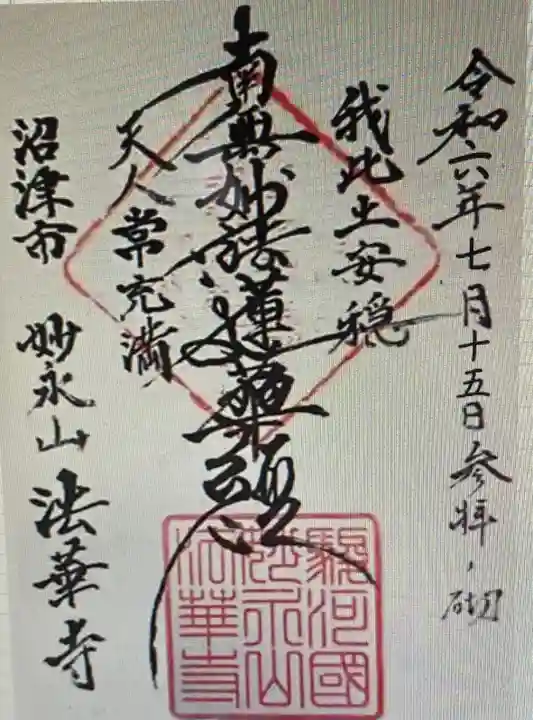 令和六年七月十五日 参拝之砌
我此土安穏
南無妙法蓮華経
天人常充満
沼津市 妙永山 法華寺
駿河國
妙永山
法華寺